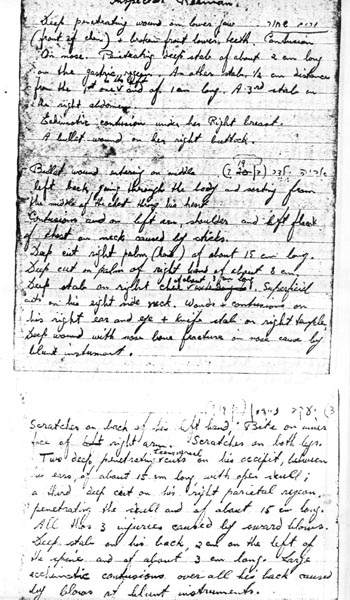 Inspector
Deep penetrating wound on lower jaw
(front of chin) a broken front lower teeth. Contusion
On nose. Penetrating deep stab of about 2 cm long
on the gastric region. Another stab ½ cm distance
from the 1st one and of 1 cm long. A 3rd stab on
the right abdomen.
Echimotic contusion under her Right breast.
A bullet wound on her right buttock.
Bullet wound entering on middle
left back going through the body and
the middle of the left thigh his
Contusions and on left arm, shoulder and left flank
of chest on neck caused by sticks.
Deep cut right palm (hand) of about 15 cm long.
Deep cut in palm of right hand of about 8 cm
Deep stab on right Superficial
cuts on his right side neck. Wounds + contusions on
his right ear and eye + knife stab on right temple.
Deep wound with nose bone fracture on nose cause by
blunt instrument.
Scratches on back of his left hand. Bite on inner
face of right arm. Scratches on both legs.
Two deep penetrating transversal cuts on his occiput, between
his ears, of about 15 cm long with open skull;
a third deep cut on his right parietal region,
penetrating the skull and of about 15 cm long.
All this 3 injuries caused by sword blows.
Deep stab on his back, 2 cm on the left of
the spine and of about 3 cm long. Large
echimotic contusions over all his back caused
by blows of blunt instruments.